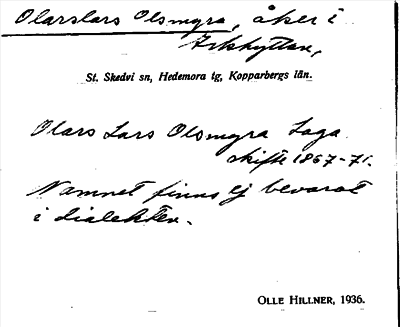 Olarslars Olsmyra, åker i
Arkhyttan,
St. Skedvi sn, Hedemora tg, Kopparbergs län.
Olars Lars Olsmyra Laga
skifte 1867-71.
Namnet finns ej bevarat
i dialekten.
OLLE HILLNER, 1936.